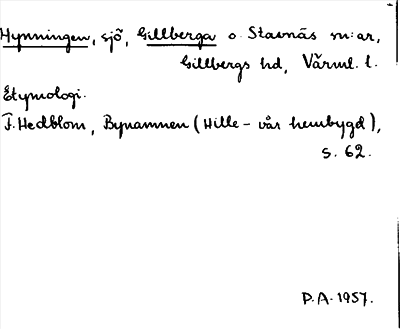 Hynningen, sjö, Gillberga o. Stavnäs sn:ar,
Gillbergs hd, Värml. l.
Etymologi.
F. Hedblom, Bynamnen (Hille - vår hembygd),
s. 62.
P.A. 1957.